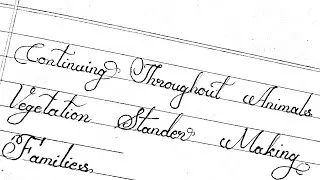 Continuing Throughout Animals
Vegetation Stander Making
Families